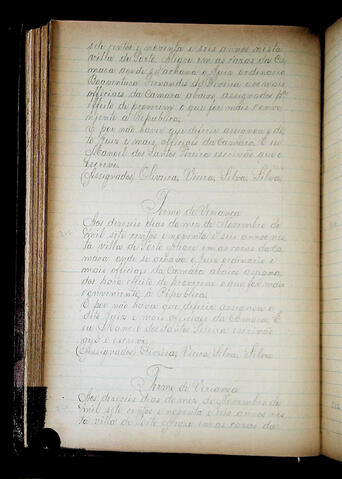 sete centos e noventa e seis annos nesta
villa de Porto Alegre em as cazas da Ca-
mara aonde se achava o Juiz ordinario
Boaventura Fernandes de Oliveira e os mais
officiaes da Camara abaixo assignados p.ª
effeito de proverem o que for mais conve-
niente á Republica.
E por não haver que deferir assignou o di-
to Juiz e mais officiaes da Camara. E eu
Manoel dos Santos escrivão que o
escrevi.
(Assignados) Oliveira, Vieira, Silva, Silva.
Termo de Veriança
Aos deseseis dias do mez de Novembro de
mil sete centos e noventa e seis annos nes-
ta villa de Porto Alegre em as cazas da Ca-
mara onde se achava o Juiz ordinario e
mais officiaes da Camara abaixo assigna-
dos para effeito de proverem o que for mais
conveniente á Republica.
E por não haver que deferir assignou o
dito Juiz e mais officiaes da Camara. E
eu Manoel dos Santos escrivão
que o escrevi.
(Assignados) Oliveira, Vieira, Silva, Silva
Termo de Veriança
Aos deseseis dias do mez de Novembro de
mil sete centos e noventa e seis annos nes-
ta villa de Porto Alegre em as cazas da